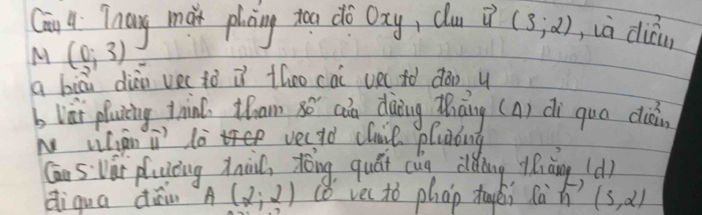 Câu 4: Trong mặt phẳng tọa độ Oxy, cho u⃗ (3;2), và điểm
M (0; 3)
a biểu diễn vec tơ u⃗ theo các vec tơ đơn
b Viết phương trình tham số của đường thẳng (Δ) đi qua điểm
nhận u⃗ là vec tơ chỉ phương
Câu 5: Viết phương trình tổng quát của đường thẳng (d)
đi qua điểm A (2; 2) có vec tơ pháp tuyến là n⃗ (3,2)